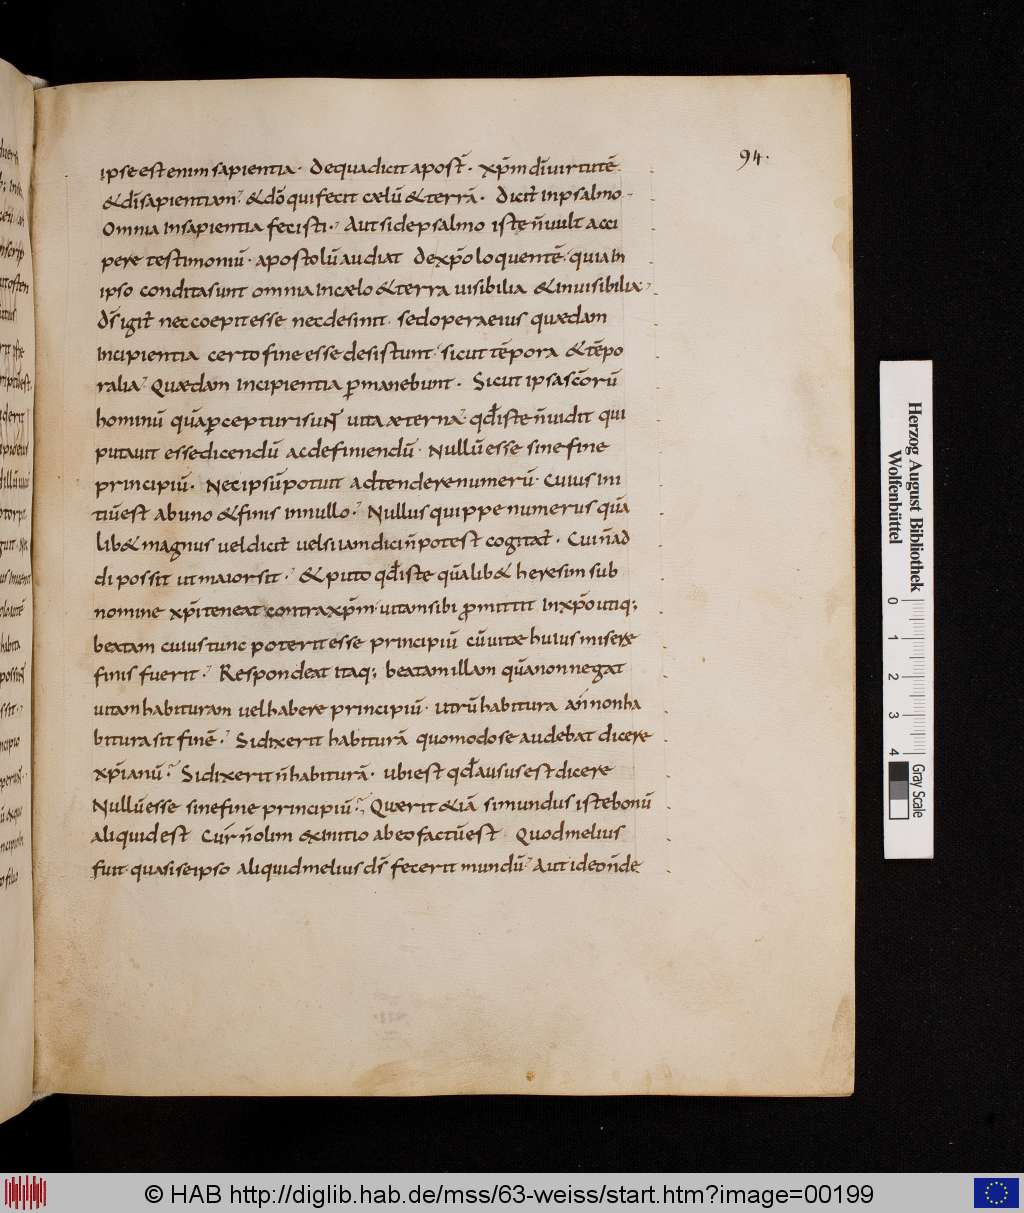 94.
ipse est enim sapientia. De qua dicit apost̄. xp̄m dī virtutē
& dī sapientiam. & dō qui fecit cælū & terrā. Dicit in psalmo
Omnia in sapientia fecisti. Aut si de psalmo iste n̄ vult acci
pere testimoniū. apostolū audiat de xp̄o loquentē. quia in
ipso condita sunt omnia in cælo & terra visibilia & invisibilia
dī igit̄ nec coepit esse nec desinit. sed opera eius quædam
incipientia certo fine esse desistunt. sicut tēpora & tēpo
ralia. Quædam incipientia ꝑmanebunt. Sicut ips ascōrū
hominū quā ꝑcepturi sunt vita æterna. qđ iste n̄ vidit qui
putavit esse dicendū ac definiendū. Nullū esse sine fine
principiū. Nec ipsū potuit adtendere numerū. Cuius ini
tiū est ab uno & finis in nullo. Nullus quippe numerus quā
lib& magnus vel dicit̄ vel si iam dici n̄ potest cogitat̄. Cui n̄ ad
di possit ut maior sit. & puto qđ iste quālib& heresim sub
nomine xp̄i teneat contra xp̄m vitam sibi ꝓmittit in xp̄o utiq;
beatam cuius tunc poterit esse principiū cū vitæ huius miseræ
finis fuerit. Respondeat itaq; beatam illam quā non negat
vitam habituram vel habere principiū. utrū habitura an̄ non ha
bitura sit finē. Si dixerit habiturā quomodo se audebat dicere
xp̄ianū. Si dixerit n̄ habiturā. ubi est qđ ausus est dicere
Nullū esse sine fine principiū. Quærit & iā si mundus iste bonū
aliquid est Cur n̄ olim & initio ab eo factū est Quod melius
fuit quasi se ipso aliquid melius dī fecerit mundū. Aut ideo n̄ de
Herzog August Bibliothek
Wolfenbüttel
0 1 2 3 4
Gray Scale
© HAB http://diglib.hab.de/mss/63-weiss/start.htm?image=00199